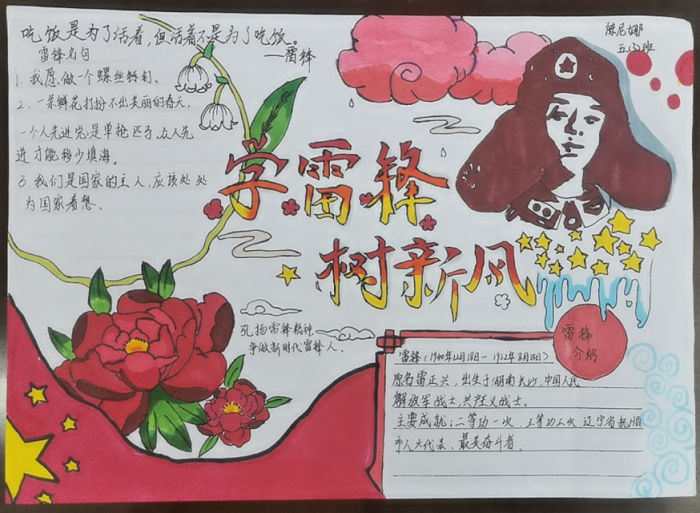 吃饭是为了活着，但活着不是为了吃饭。
——雷锋
雷锋名句
1. 我愿做一个螺丝钉。
2. 一朵鲜花打扮不出美丽的春天，
一个人先进总是单枪匹马，众人先
进才能移山填海。
3. 我们是国家的主人，应该处处
为国家着想。
五(3)班
学雷锋
树新风
弘扬雷锋精神
争做新时代雷锋人。
雷锋
介绍
雷锋（1940年12月18日—1962年8月15日）
原名雷正兴，出生于湖南长沙，中国人民
解放军战士，共产主义战士。
主要成就：二等功一次 三等功二次 辽宁省抚顺
市人大代表、最美奋斗者。